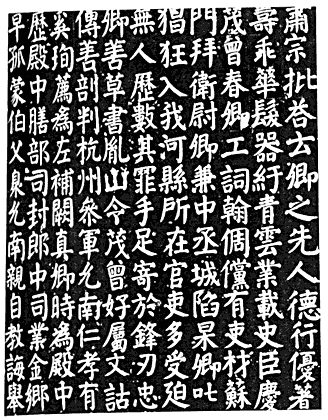 肅宗批荅云卿之先人德行優著
壽乖華髮器紆青雲業載史臣慶
茂曾春卿工詞翰倜儻有吏材蘇
門拜衛尉卿兼中丞城陷杲卿叱
猖狂入我河縣所在官吏多受廹
無人歷數其罪手足寄於鋒刃忠
卿善草書胤山令茂曾好屬文詁
傳善剖判杭州叅軍允南仁孝有
奚珣薦為左補闕真卿時為殿中
歷殿中膳部司封郎中司業金卿
早孤蒙伯父臮允南親自教誨舉